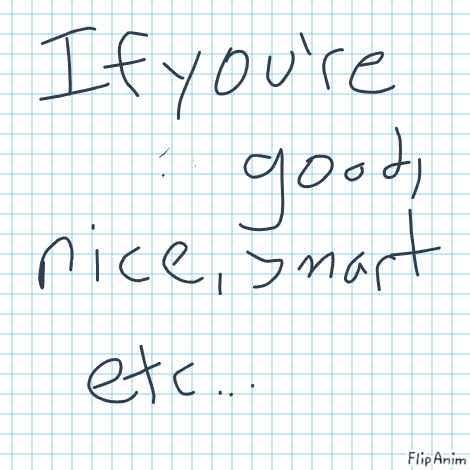 If you're
good,
nice, smart
etc...
FlipAnim